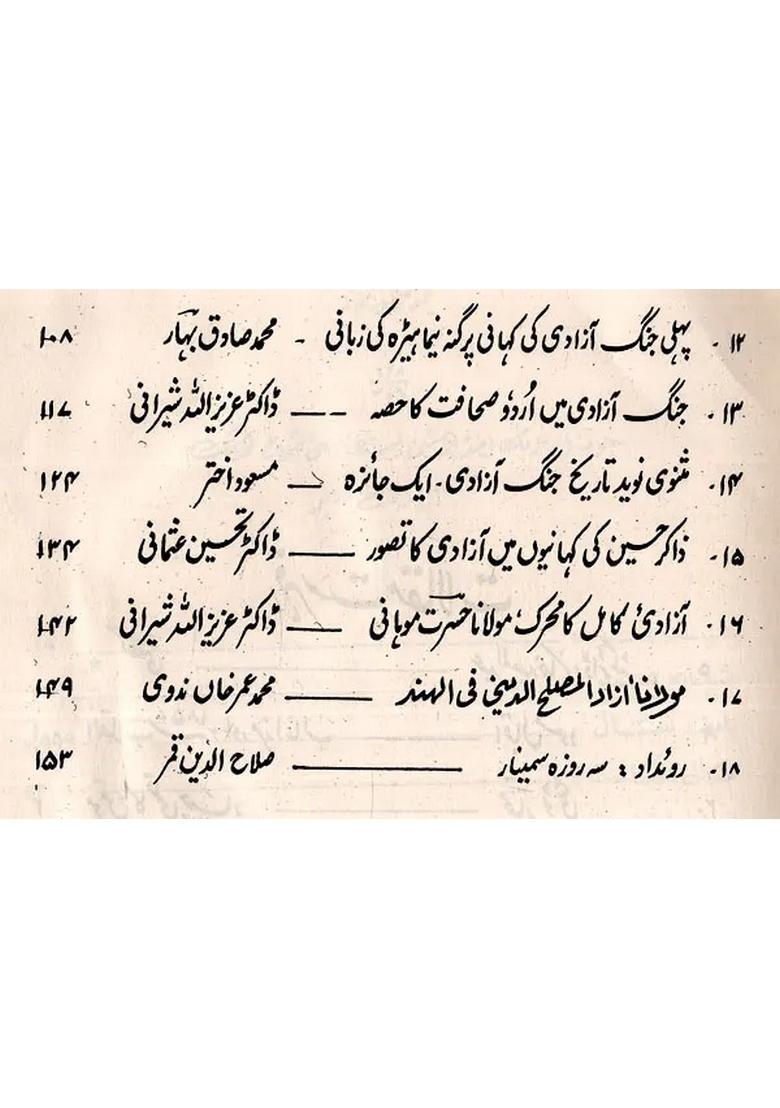 ۱۲۔ پہلی جنگ آزادی کی کہانی پرگنہ نیماہیڑہ کی زبانی ۔ محمد صادق بہار ۱۰۸
۱۳۔ جنگ آزادی میں اُردو صحافت کا حصہ —— ڈاکٹر عزیز اللہ شیرانی ۱۱۷
۱۴۔ مثنوی نوید تاریخ جنگ آزادی۔ ایک جائزہ — مسعود اختر ۱۲۴
۱۵۔ ذاکر حسین کی کہانیوں میں آزادی کا تصور —— ڈاکٹر تحسین عثمانی ۱۳۴
۱۶۔ آزادیٔ کامل کا محرک؛ مولانا حسرت موہانی —— ڈاکٹر عزیز اللہ شیرانی ۱۴۲
۱۷۔ مولانا آزاد المصلح الدینی فی الہند —— محمد عمر خاں ندوی ۱۴۹
۱۸۔ روئداد : سہ روزہ سمینار —— صلاح الدین قمر ۱۵۳